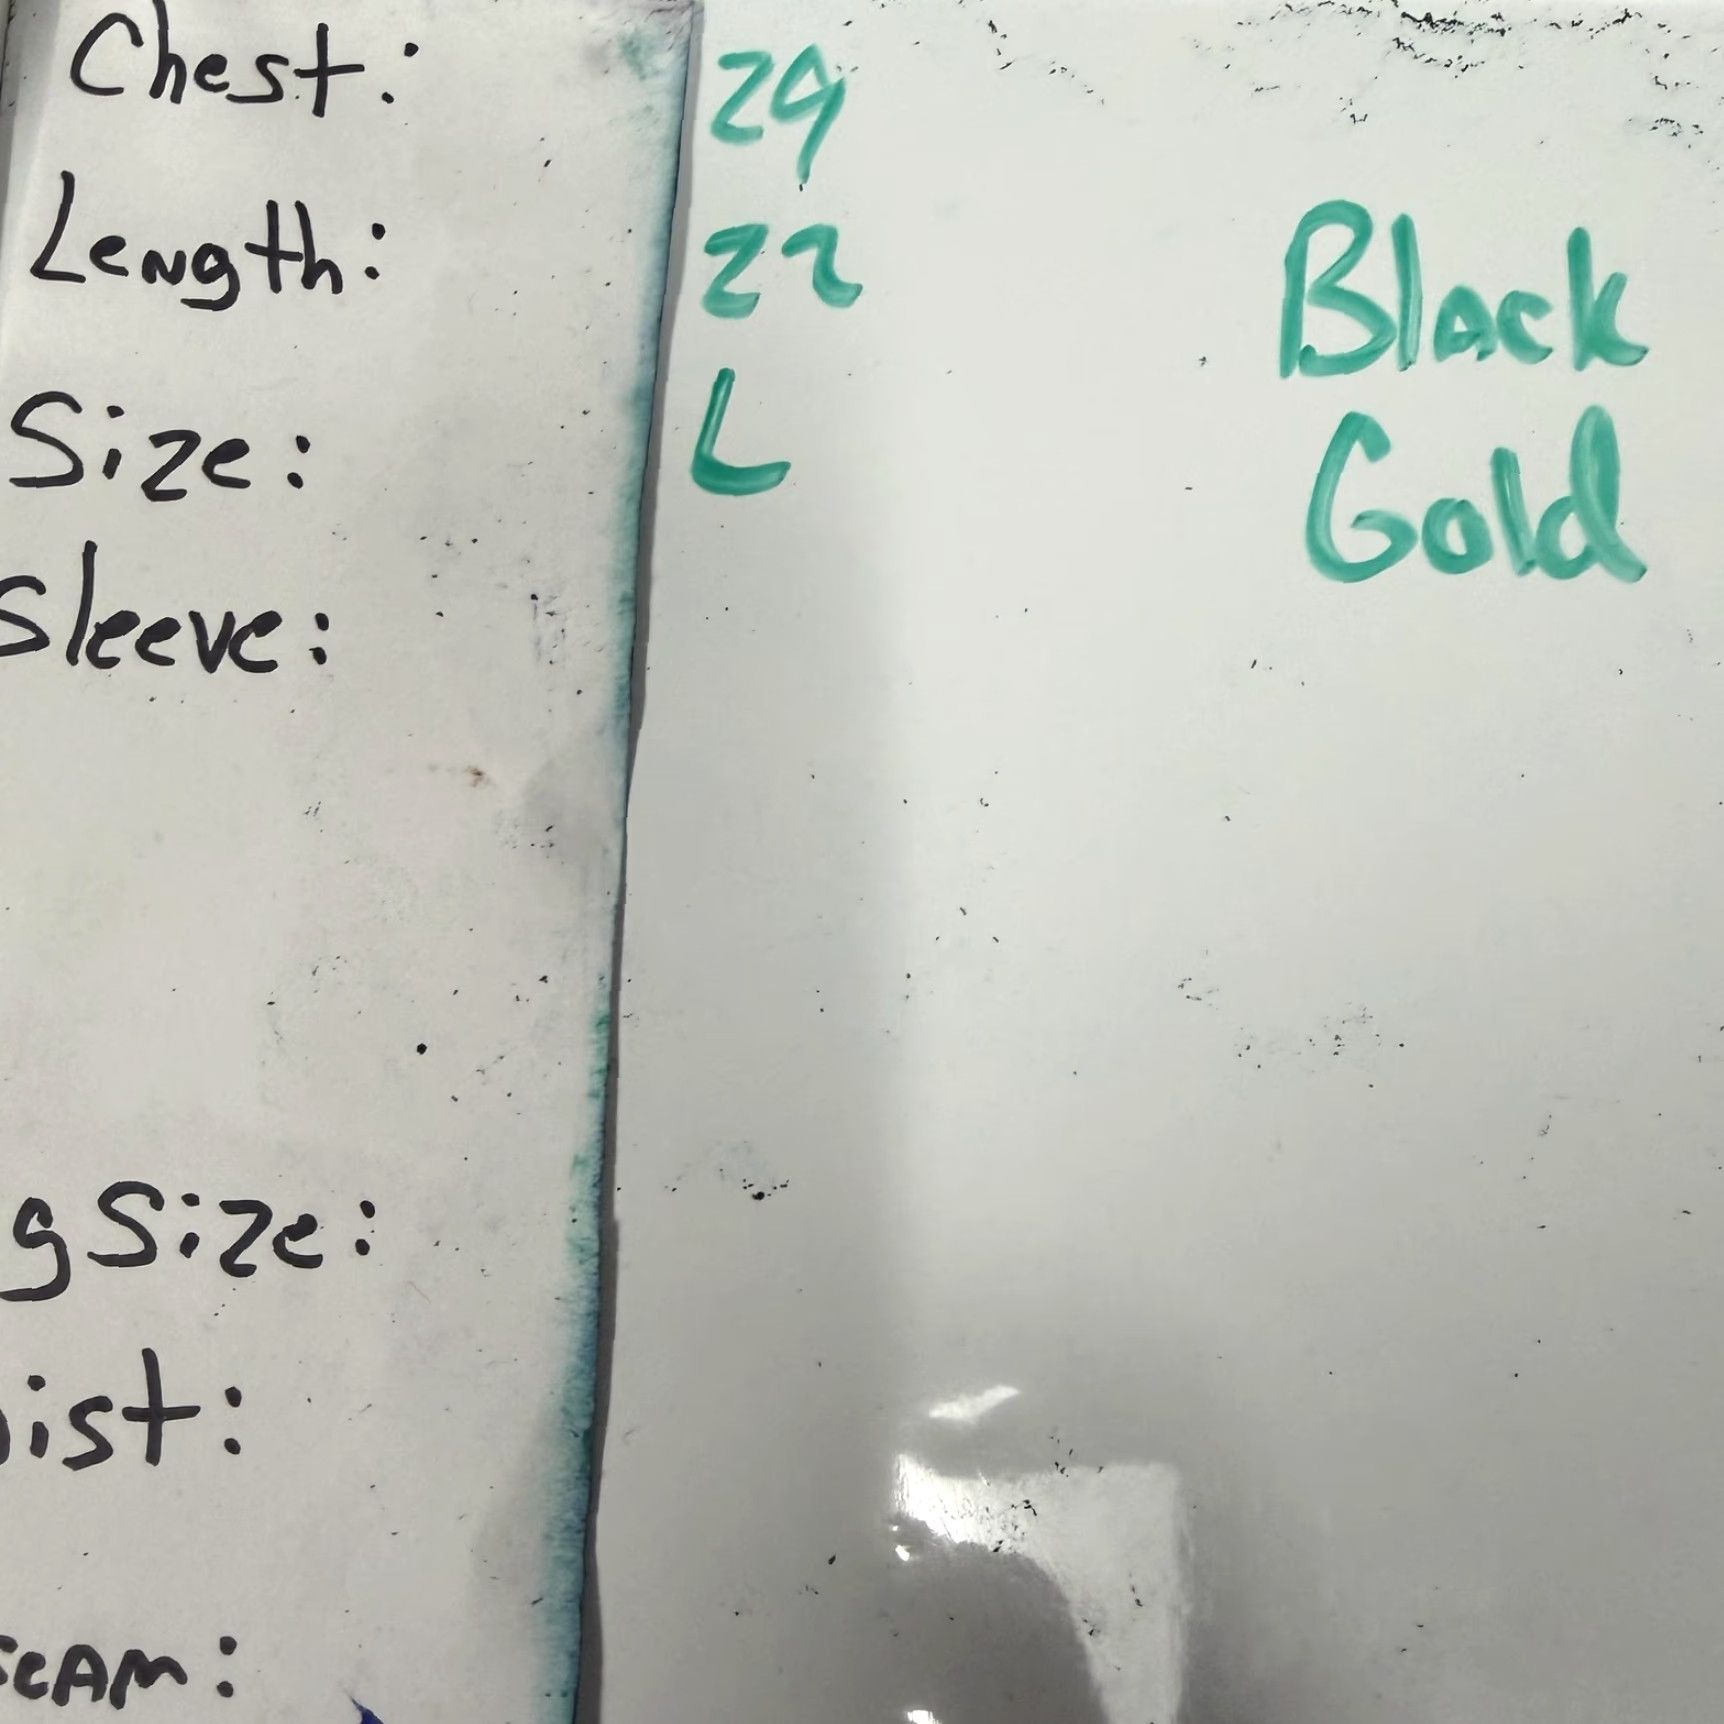 Chest: 29
Length: 22
Size: L
Black
Gold
Sleeve:
g Size:
ist:
seam: